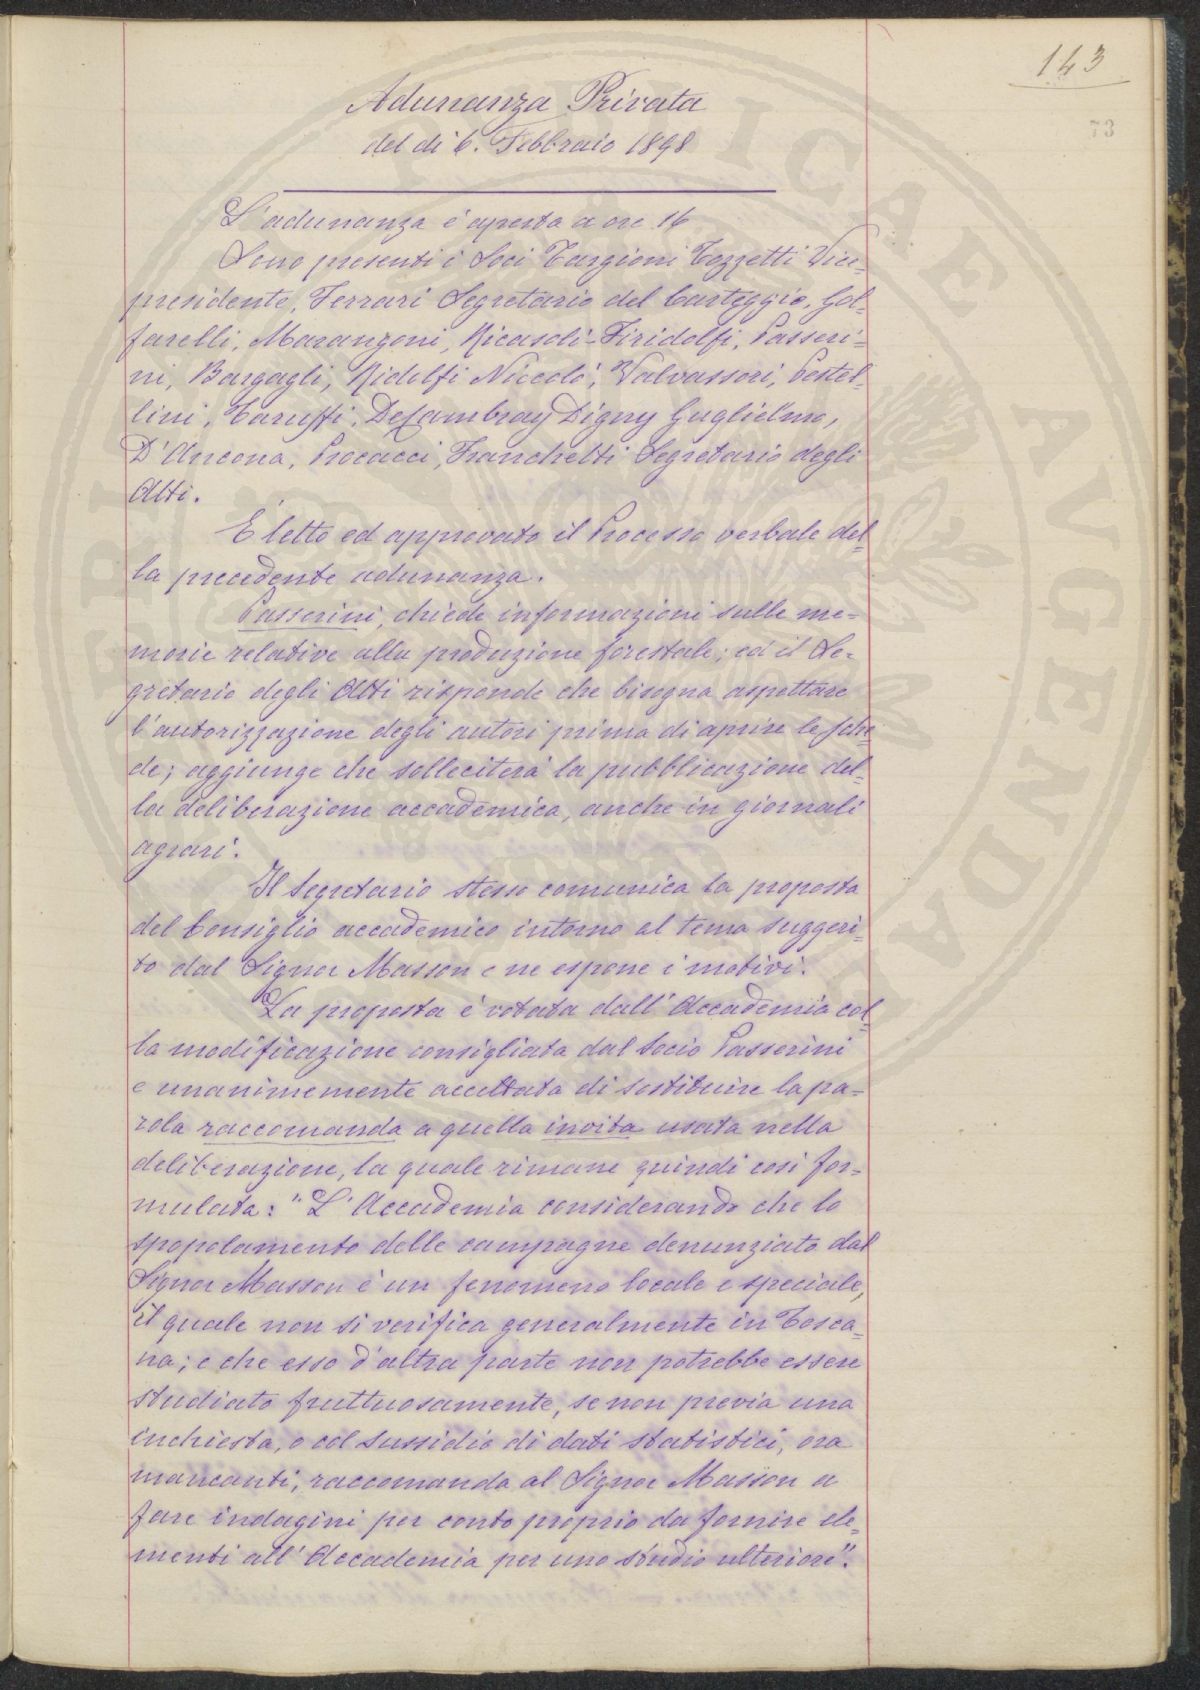 143
73
Adunanza Privata
del dì 6. Febbraio 1898
L'adunanza è aperta a ore 16
Sono presenti i Soci Targioni Tozzetti Vice-
presidente, Ferrari Segretario del Carteggio, Gol-
farelli, Marangoni, Ricasoli-Firidolfi, Passeri-
ni, Bargagli, Ridolfi Niccolò, Valvassori, Pestel-
lini, Taruffi, De Cambray Digny Guglielmo,
D'Ancona, Procacci, Franchetti Segretario degli
Atti.
È letto ed approvato il Processo verbale del-
la precedente adunanza.
Passerini, chiede informazioni sulle me-
morie relative alla produzione forestale; ed il Se-
gretario degli Atti risponde che bisogna aspettare
l'autorizzazione degli autori prima di aprire le sche-
de; aggiunge che solleciterà la pubblicazione del-
la deliberazione accademica, anche in giornali
agrari.
Il Segretario stesso comunica la proposta
del Consiglio accademico intorno al tema suggeri-
to dal Signor Masson e ne espone i motivi.
La proposta è votata dall'Accademia col-
la modificazione consigliata dal Socio Passerini
e unanimemente accettata di sostituire la pa-
rola raccomanda a quella invita usata nella
deliberazione, la quale rimane quindi così for-
mulata: "L'Accademia considerando che lo
spopolamento delle campagne denunziato dal
Signor Masson è un fenomeno locale e speciale,
il quale non si verifica generalmente in Tosca-
na; e che esso d'altra parte non potrebbe essere
studiato fruttuosamente, se non previa una
inchiesta, o col sussidio di dati statistici, ora
mancanti, raccomanda al Signor Masson a
fare indagini per conto proprio da fornire ele-
menti all'Accademia per uno studio ulteriore".